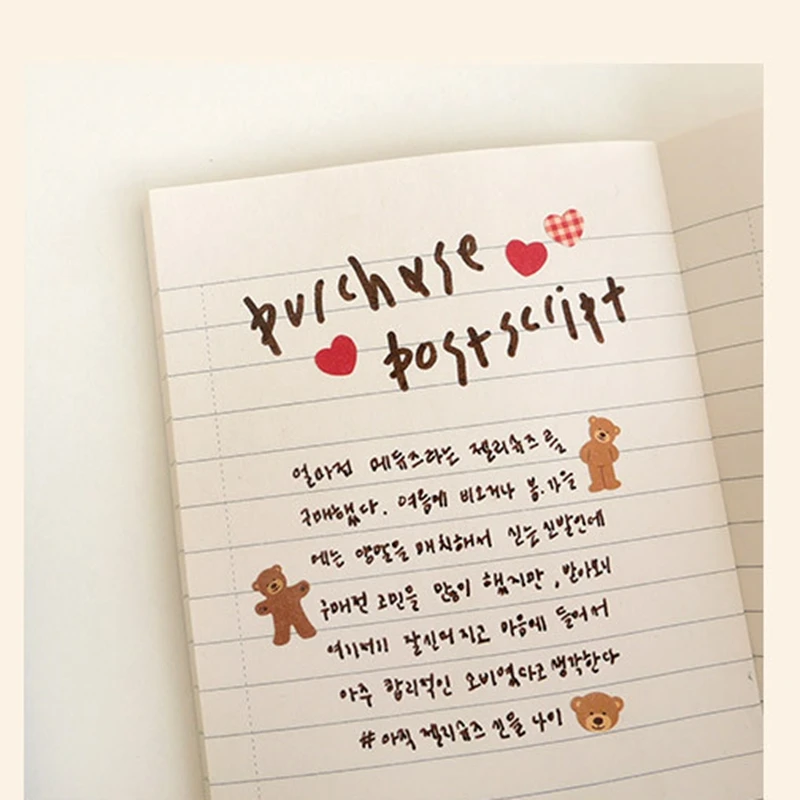 purchase
postscript
얼마전 메듀즈라는 젤리슈즈를
구매했다. 여름에 비오거나 봄.가을
에는 양말을 매치해서 신는 신발인데
구매전 고민을 많이 했지만, 받아보니
여기저기 잘신어지고 마음에 들어서
아주 합리적인 소비였다고 생각한다
#아직 젤리슈즈 신을 나이